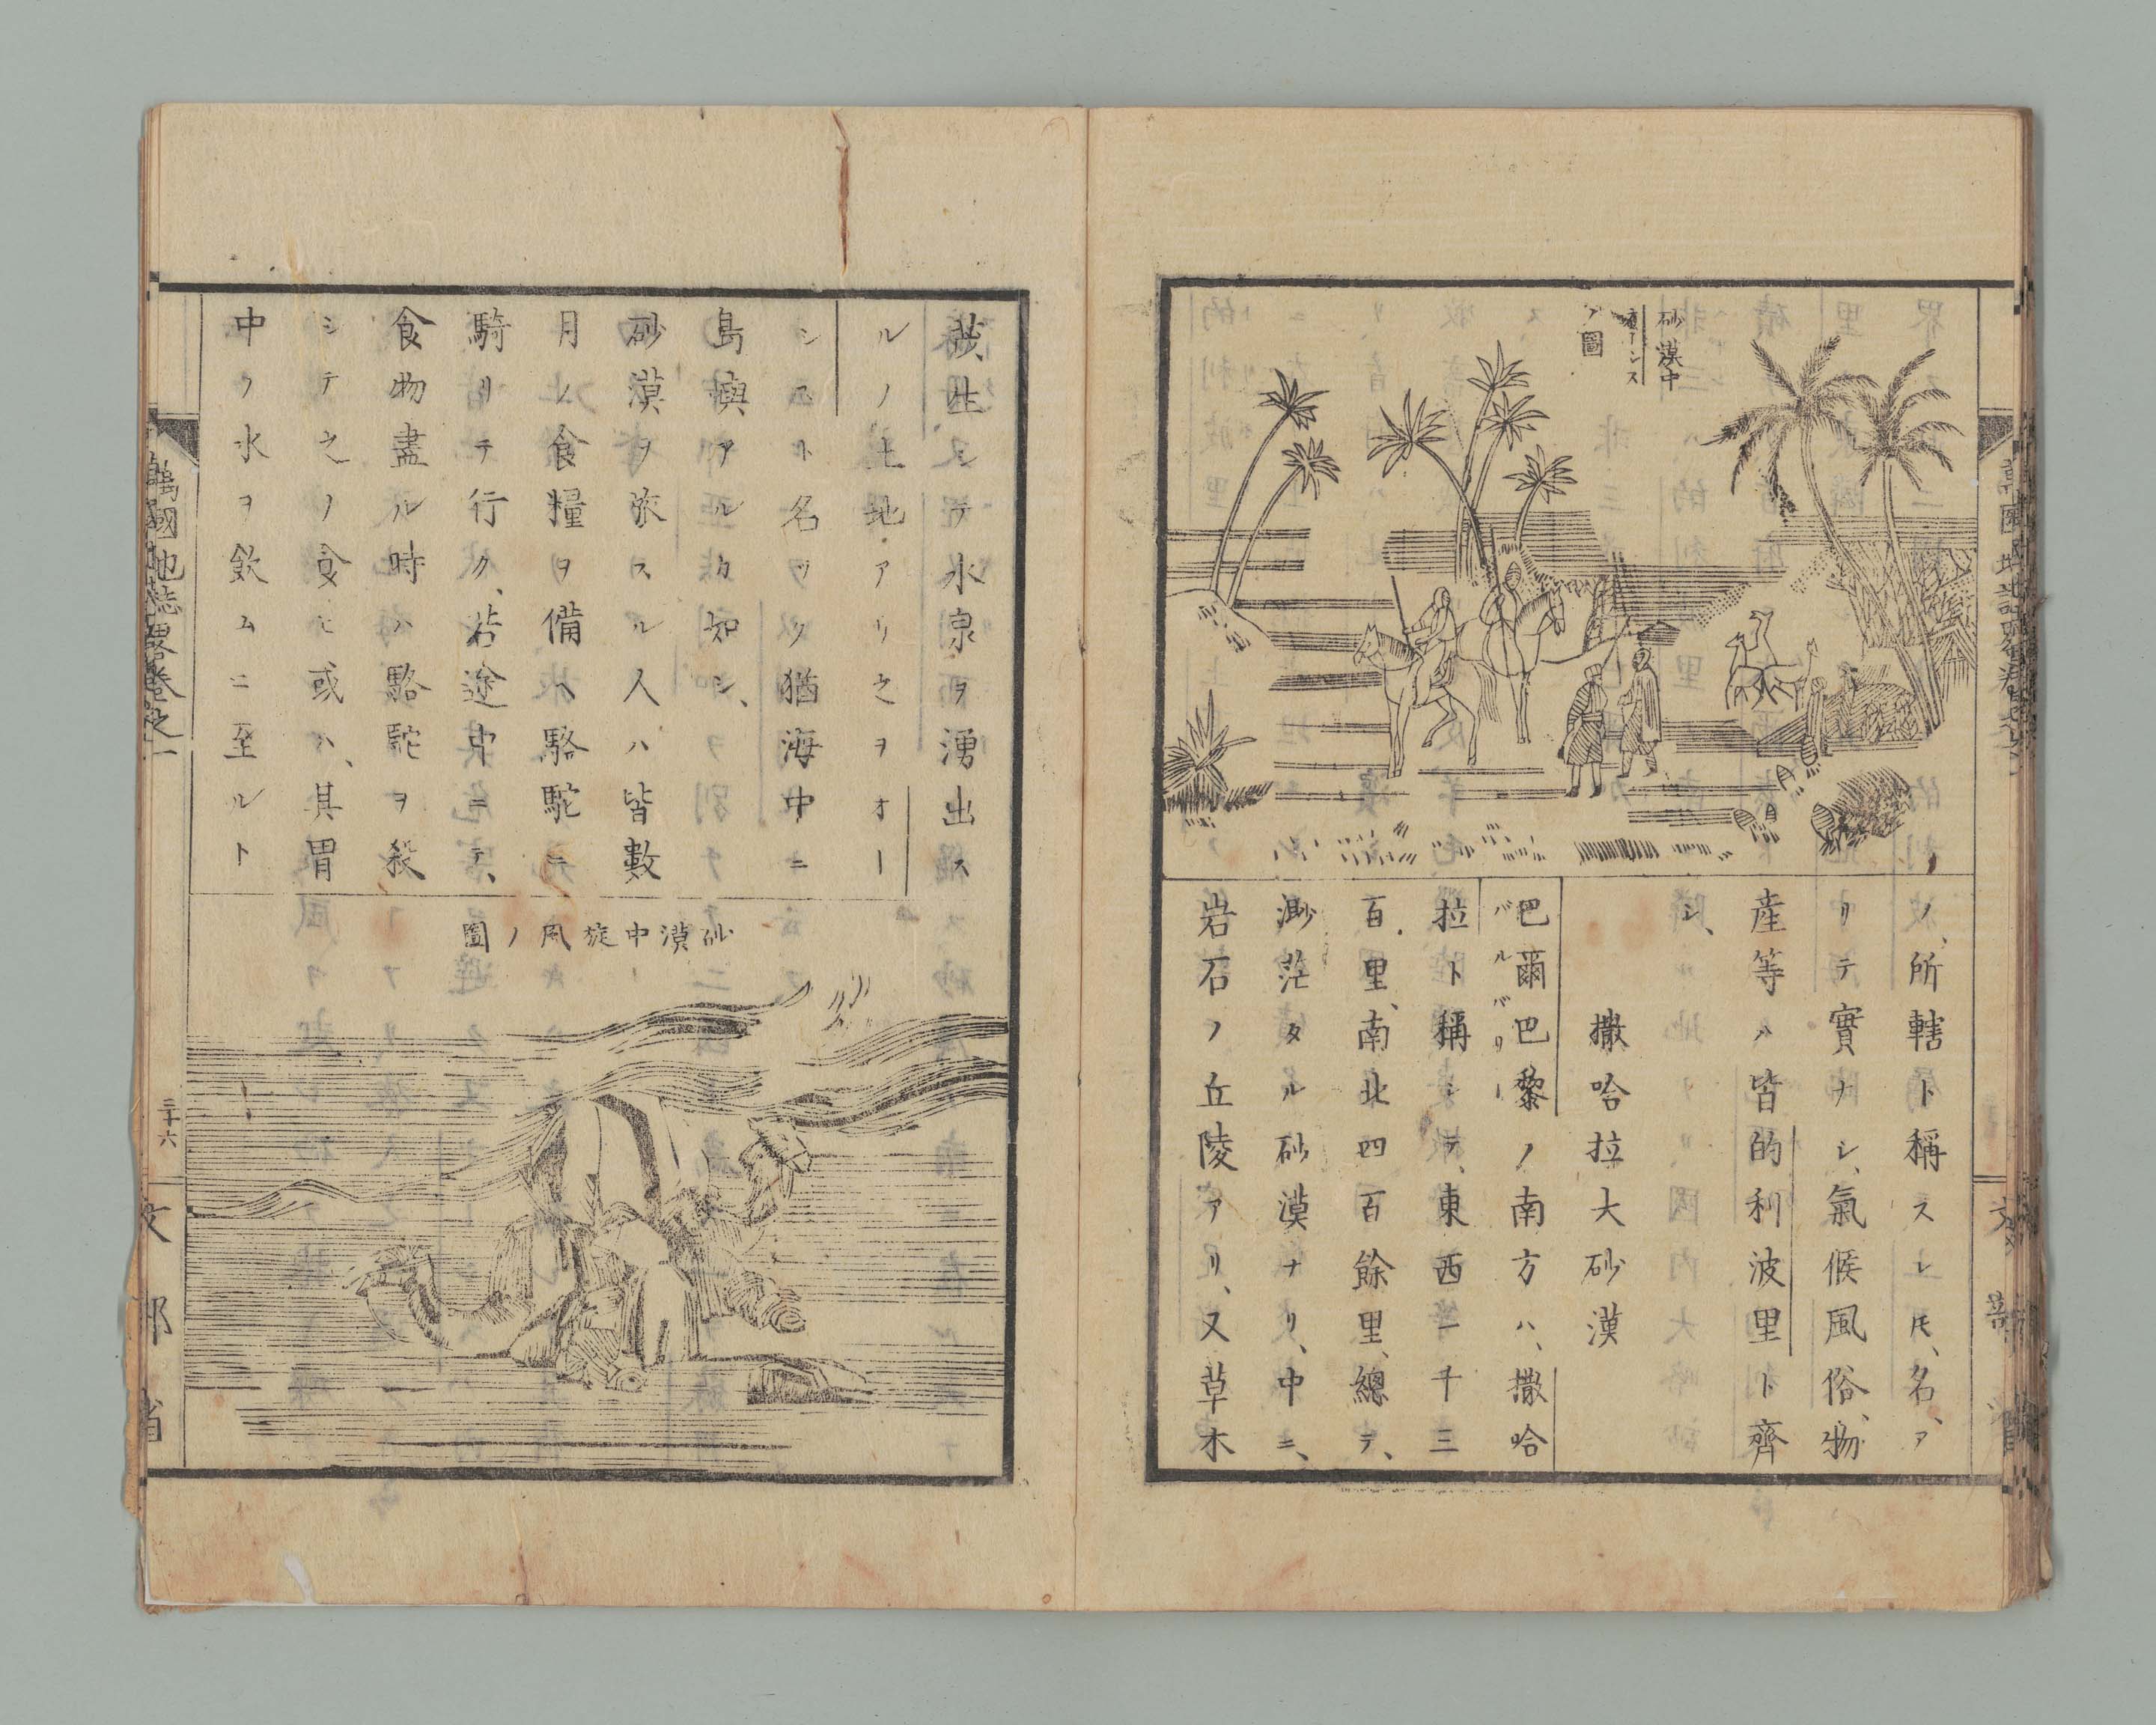 砂漠中
オーシス
ノ圖
ノ、所轄ト稱スレ𪜈、名、ア
リテ實ナシ、氣候風俗、物
産等ハ皆的利波里ト齊
シ、
撒哈拉大砂漠
巴爾巴黎ノ南方ハ、撒哈
バルバリー
拉ト稱シテ、東西一千三
百里、南北四百餘里、總テ、
渺茫タル砂漠ナリ、中ニ、
岩石ノ丘陵アリ、又草木
茂生シテ水泉ヲ湧出ス
ルノ土地アリ之ヲオー
シスト名ツク猶海中ニ
島嶼アルカ如シ、
砂漠ヲ旅スル人ハ皆數
月ノ食糧ヲ備ヘ駱駝ニ
騎リテ行ク、若途中ニテ、
食物盡ル時ハ駱駝ヲ殺
シテ之ノ食ヒ或ハ、其胃
中ノ水ヲ飲ムニ至ルト
砂漠中旋風ノ圖
萬國地誌畧卷之一
三十六
文部省